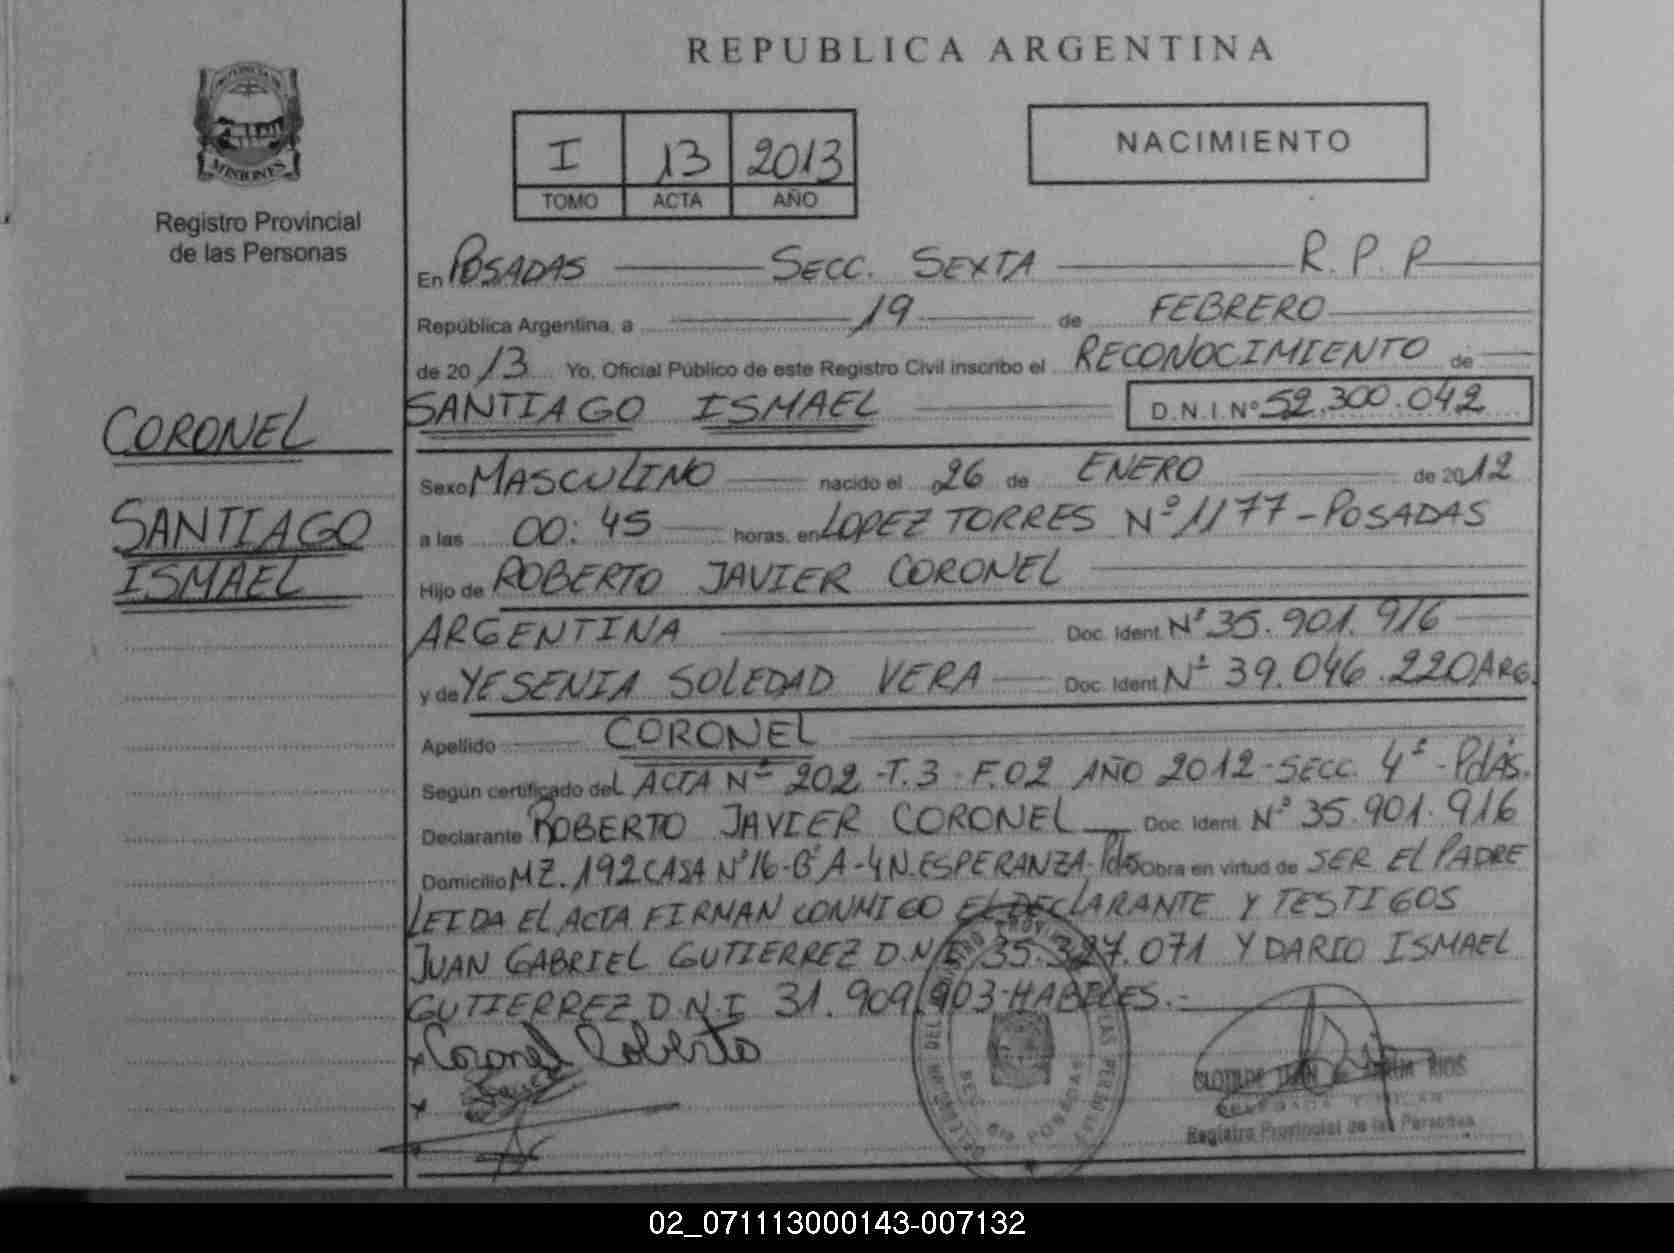 REPUBLICA ARGENTINA
MISIONES
Registro Provincial
de las Personas
I 13 2013
TOMO ACTA AÑO
NACIMIENTO
En POSADAS SECC. SEXTA R. P. P
República Argentina, a 19 de FEBRERO
de 2013 Yo, Oficial Público de este Registro Civil inscribo el RECONOCIMIENTO de
SANTIAGO ISMAEL D.N.I. Nº 52.300.042
CORONEL
SANTIAGO
ISMAEL
Sexo MASCULINO nacido el 26 de ENERO de 2012
a las 00:45 horas, en LOPEZ TORRES Nº 1177 - POSADAS
Hijo de ROBERTO JAVIER CORONEL
ARGENTINA Doc. Ident. Nº 35.901.916
y de YESENIA SOLEDAD VERA Doc. Ident. Nº 39.046.220 ARG.
Apellido CORONEL
Según certificado del ACTA Nº 202 - T. 3 - F. 02 AÑO 2012 - SECC. 4ª - Pdas.
Declarante ROBERTO JAVIER CORONEL Doc. Ident. Nº 35.901.916
Domicilio MZ. 192 CASA Nº 16 - Bº A-4 N. ESPERANZA - Pdas Obra en virtud de SER El PADRE
LEIDA El ACTA FIRMAN CONMIGO El DEClARANTE Y TESTIGOS
JUAN GABRIEL GUTIERREZ D.N.I. 35.327.071 Y DARIO ISMAEL
GUTIERREZ D.N.I 31.909.903 - HABILES.-
x Coronel Roberto
x
Registro Provincial de las Personas
POSADAS
02_071113000143-007132